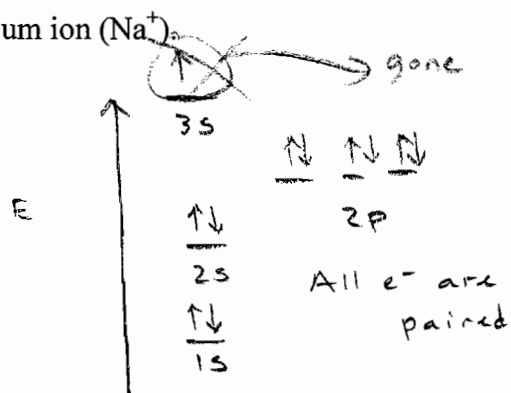 um ion (Na⁺).
gone
3s
E
2p
2s
All e⁻ are
paired
1s